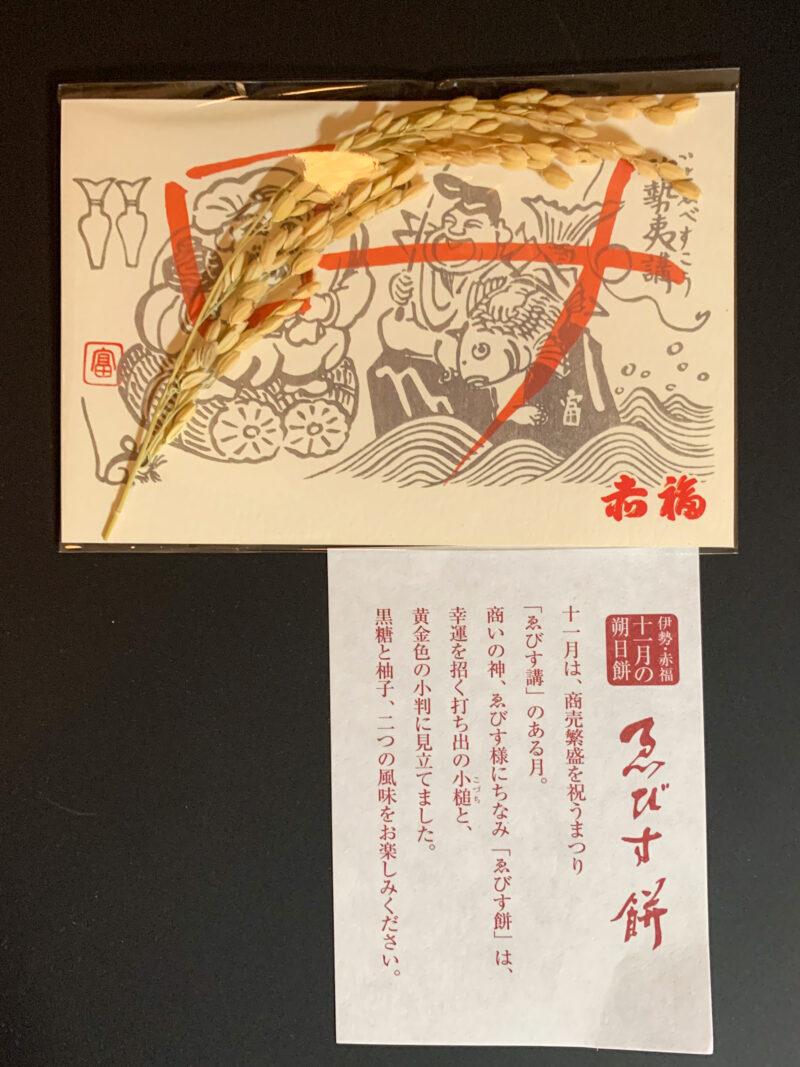 勢夷講
べすこう
富
富
赤福
伊勢・赤福
十一月の
朔日餅
ゑびす餅
十一月は、商売繁盛を祝うまつり
「ゑびす講」のある月。
商いの神、ゑびす様にちなみ「ゑびす餅」は、
幸運を招く打ち出の小槌と、
こづち
黄金色の小判に見立てました。
黒糖と柚子、二つの風味をお楽しみください。